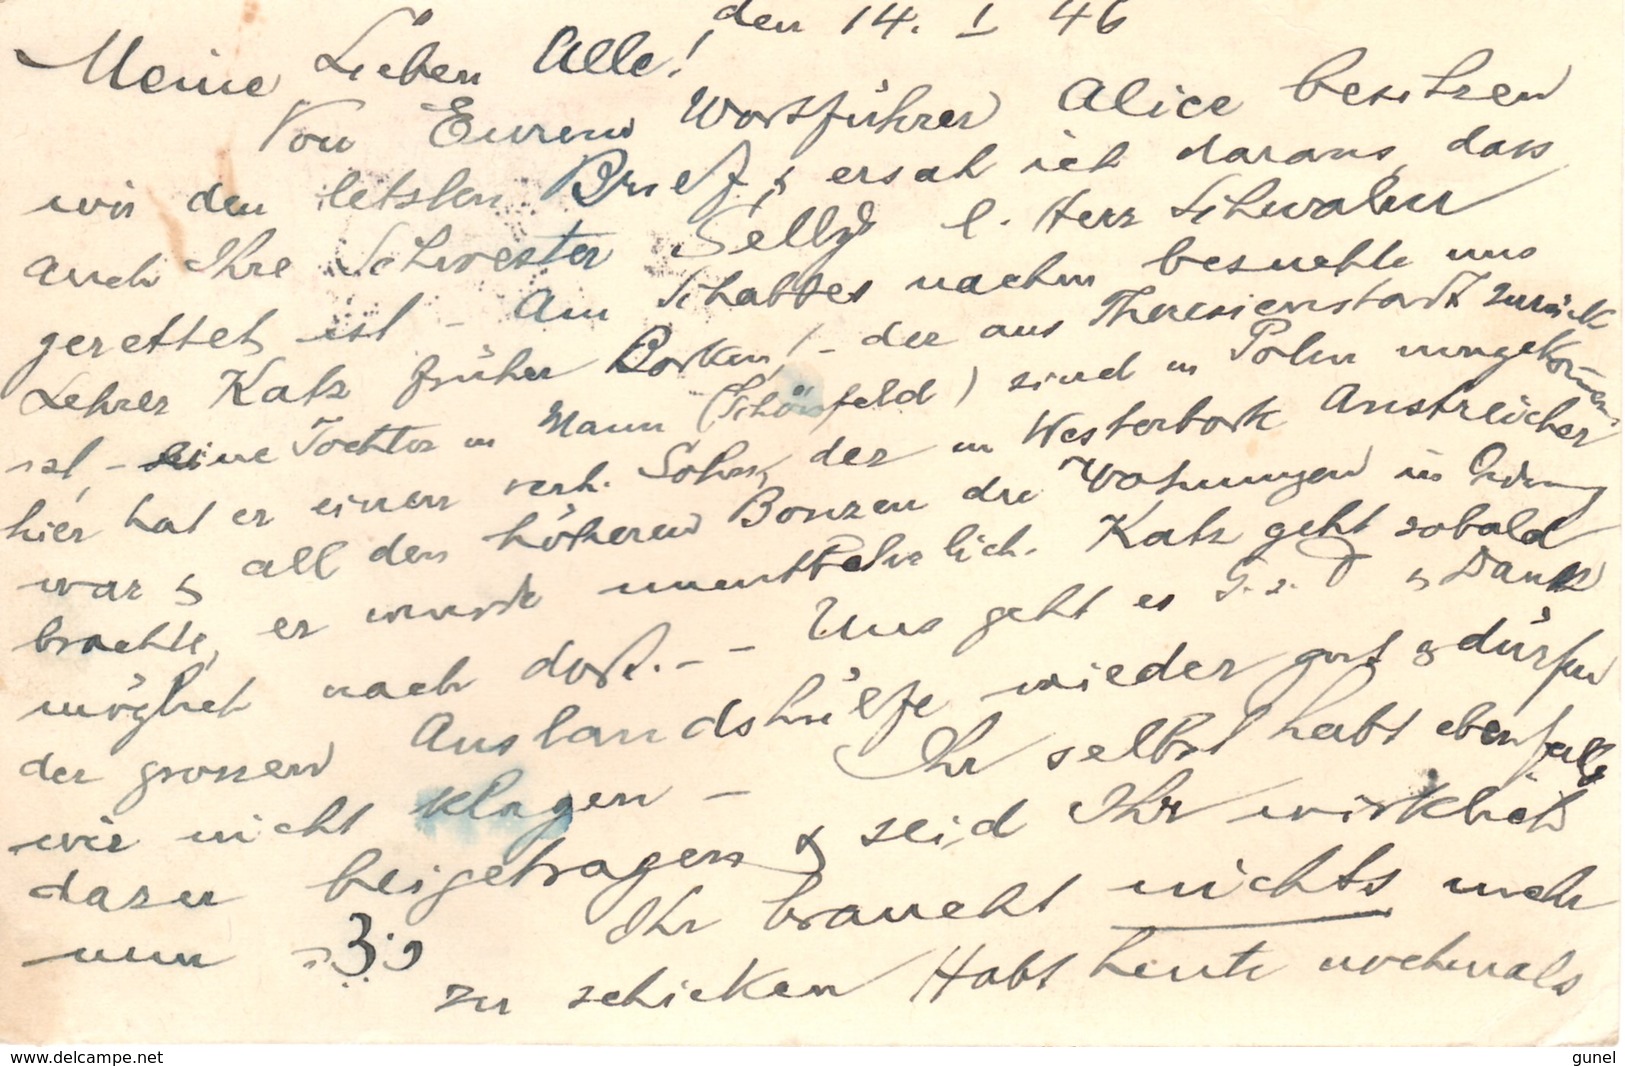 den 14. I 46
Meine Lieben Alle!
Von Eurem Wortführer Alice besitzen
wir den letzten Brief, & ersah ich daraus, dass
auch Ihre Schwester Selly l. Herr Schwalm
gerettet ist – Am Schabbes nachm besuchte uns
Lehrer Katz früher Borken! – der aus Theresienstadt zurück
ist, – seine Tochter u Mann (Schönfeld) sind in Polen umgekommen.
hier hat er einen verh. Sohn, der in Westerbork Anstreicher
war & all den höheren Bonzen die Wohnungen in Ordnung
brachte, er wurde unentbehrlich. Katz geht sobald
möglich nach dort. – – Uns geht es G. s. D & Dank
der grossen Auslandshülfe wieder gut & dürfen
wir nicht klagen – Ihr selbst habt ebenfalls
dazu beigetragen & seid Ihr wirklich
nun Ihr braucht nichts mehr
zu schicken Habt heute nochmals
www.delcampe.net
gunel